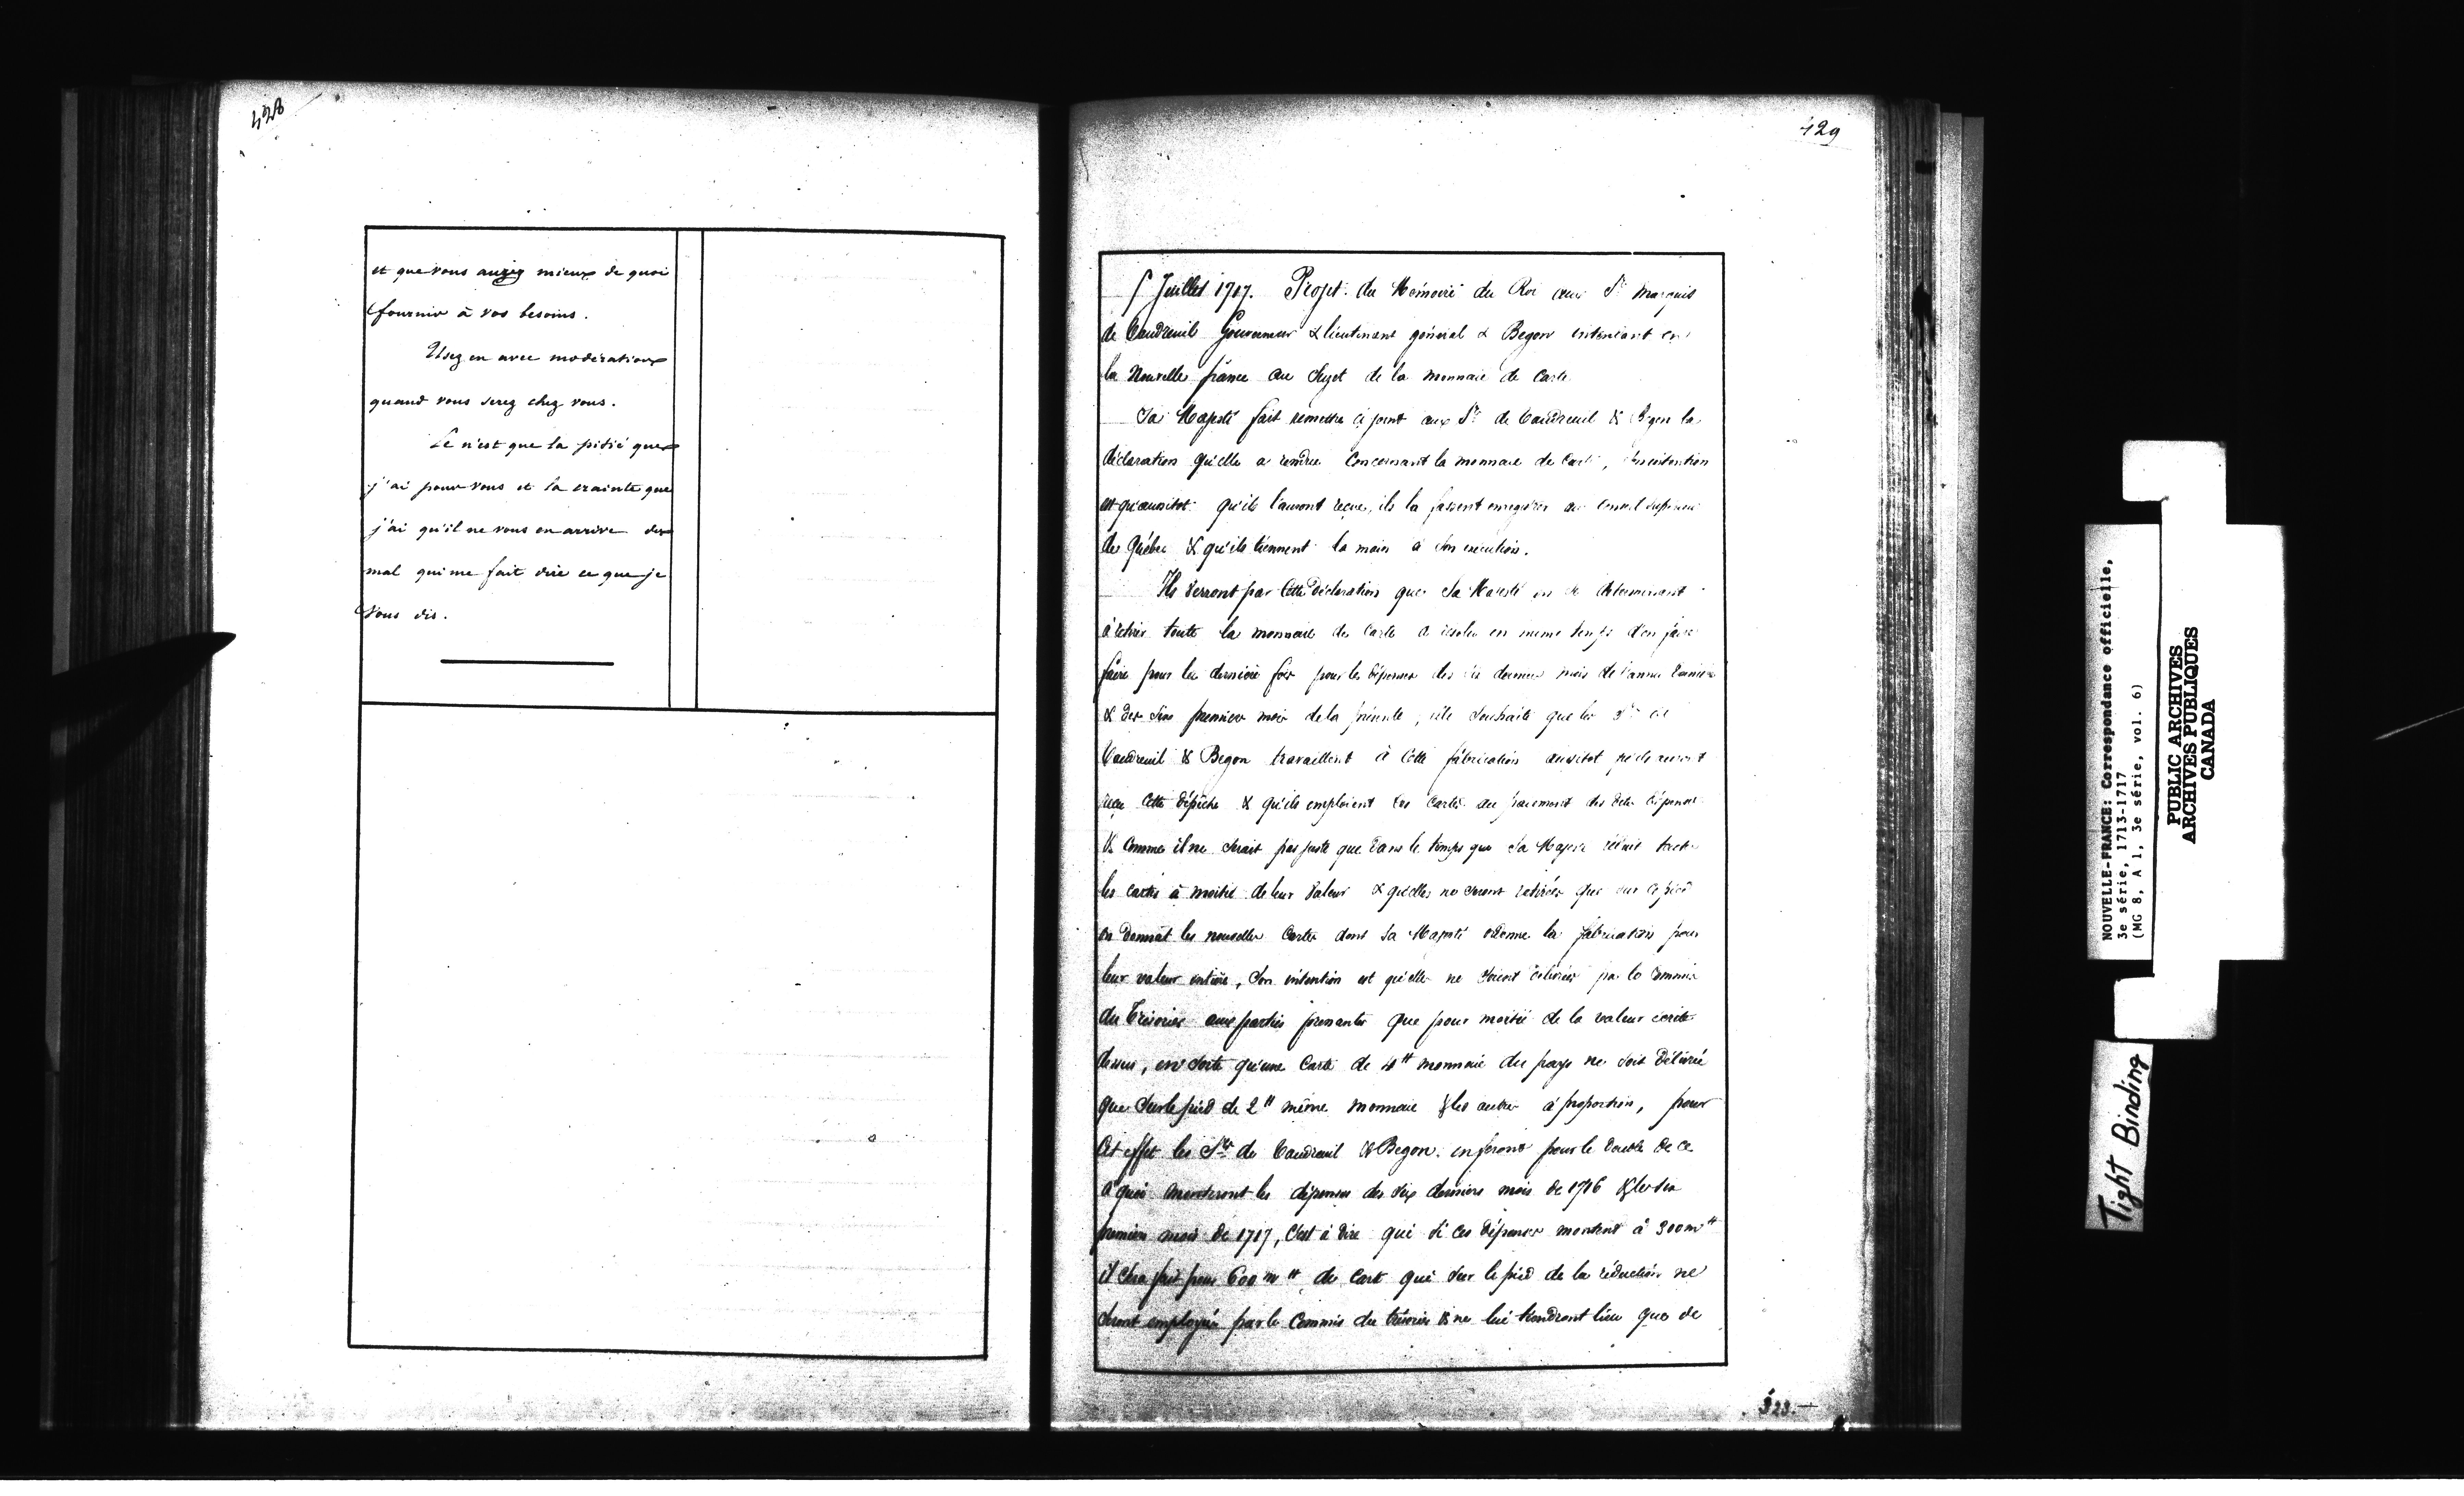 428
et que vous auziez mieux de quoi
fournir à vos besoins.
Usez en avec modération
quand vous serez chez vous.
Ce n'est que la pitié que
j'ai pour vous et la crainte que
j'ai qu'il ne vous en arrive du
mal qui me fait dire ce que je
vous dis.
429
Juillet 1717. Projet du Mémoire du Roi aux Srs Marquis
de Vaudreuil Gouverneur & lieutenant général & Begon intendant en
la Nouvelle france au Sujet de la monnaie de Carte
Sa Majesté fait remettre ci joint aux Srs de Vaudreuil & Begon la
déclaration qu'elle a rendue Concernant la monnaie de Carte, Son intention
est qu'aussitot qu'ils l'auront reçue, ils la fassent enregistrer au Conseil Supérieur
de Québec & qu'ils tiennent la main à Son exécution.
Ils verront par Cette Déclaration que Sa Majesté en se déterminant
à retirer toute la monnaie de Carte a résolu en meme temps d'en faire
faire pour la derniere fois pour les dépenses des six derniers mois de l'année derniere
& des Six premiers mois de la présente, elle Souhaite que les Srs de
Vaudreuil & Begon travaillent à Cette fabrication aussitot qu'ils auront
reçu Cette dépêche & qu'ils emploient les Cartes au paiement des dites dépenses
& Comme il ne Serait pas juste que dans le temps que Sa Majesté réduit toutes
les Cartes à moitié de leur Valeur & qu'elles ne Seront retirées que sur ce pied
on donnât les nouvelles Cartes dont Sa Majesté ordonne la fabrication pour
leur valeur entière, Son intention est qu'elles ne Soient délivrées par le Commis
du Trésorier aux parties prenantes que pour moitié de la valeur écrite
dessus, en Sorte qu'une Carte de 4tt monnaie du pays ne Soit Délivrée
que Sur le pied de 2tt même monnaie & les autres à proportion, pour
Cet effet les Srs de Vaudreuil & Begon en feront pour le double de ce
à quoi monteront les dépenses des Six derniers mois de 1716 & les Six
premiers mois de 1717, C'est à dire que Si Ces Dépenses montent à 300 mtt
il Sera fait pour 600 mtt de Carte qui Sur le pied de la réduction ne
Seront employées par le Commis du trésorier & ne lui tiendront lieu que de
323.
NOUVELLE-FRANCE: Correspondance officielle,
3e série, 1713-1717
(MG 8, A 1, 3e série, vol. 6)
PUBLIC ARCHIVES
ARCHIVES PUBLIQUES
CANADA
Tight Binding